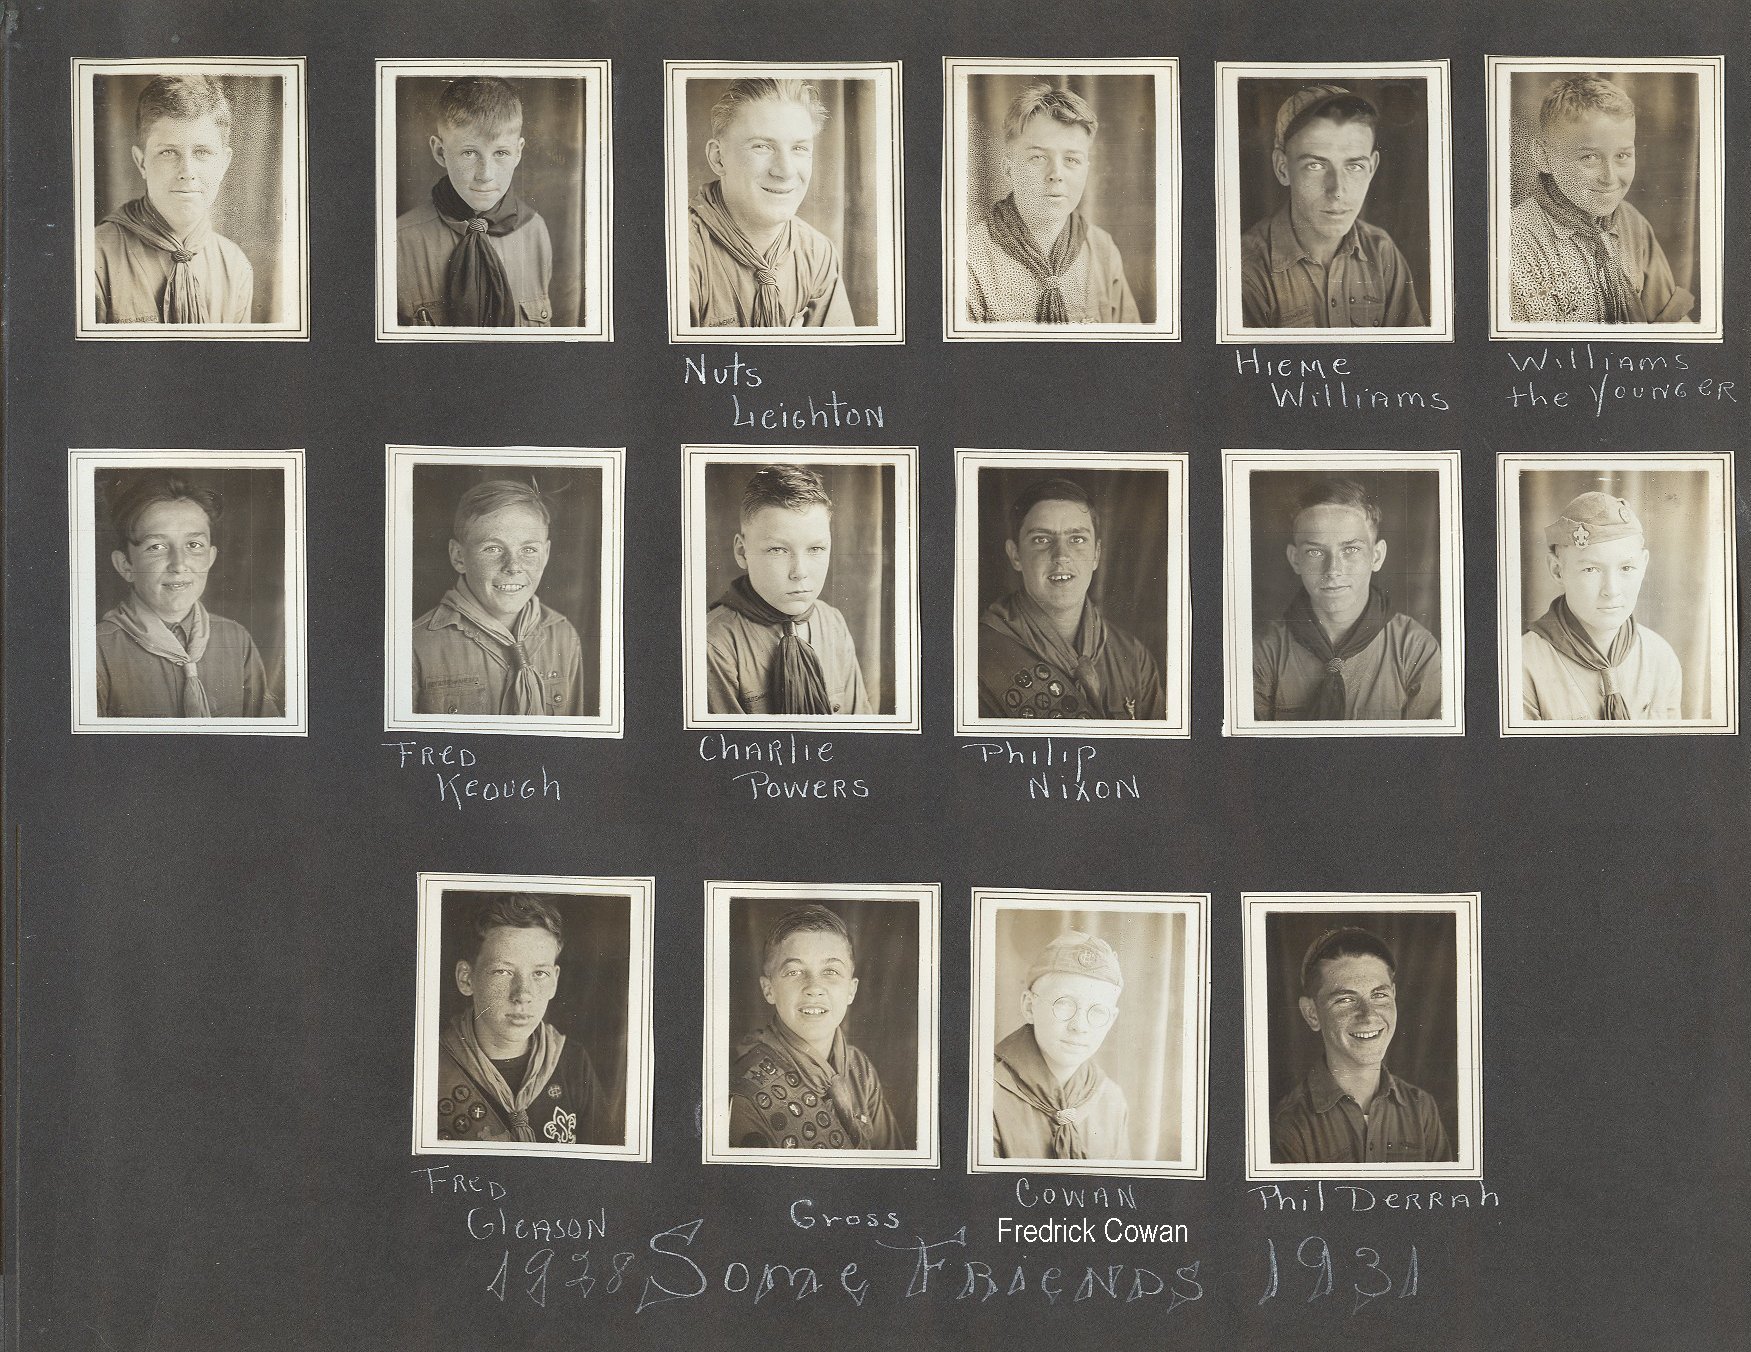 Nuts
Leighton
Hieme
Williams
Williams
the Younger
Fred
Keough
Charlie
Powers
Philip
Nixon
Fred
Gleason
Gross
Cowan
Fredrick Cowan
Phil Derrah
1928 Some Friends 1931